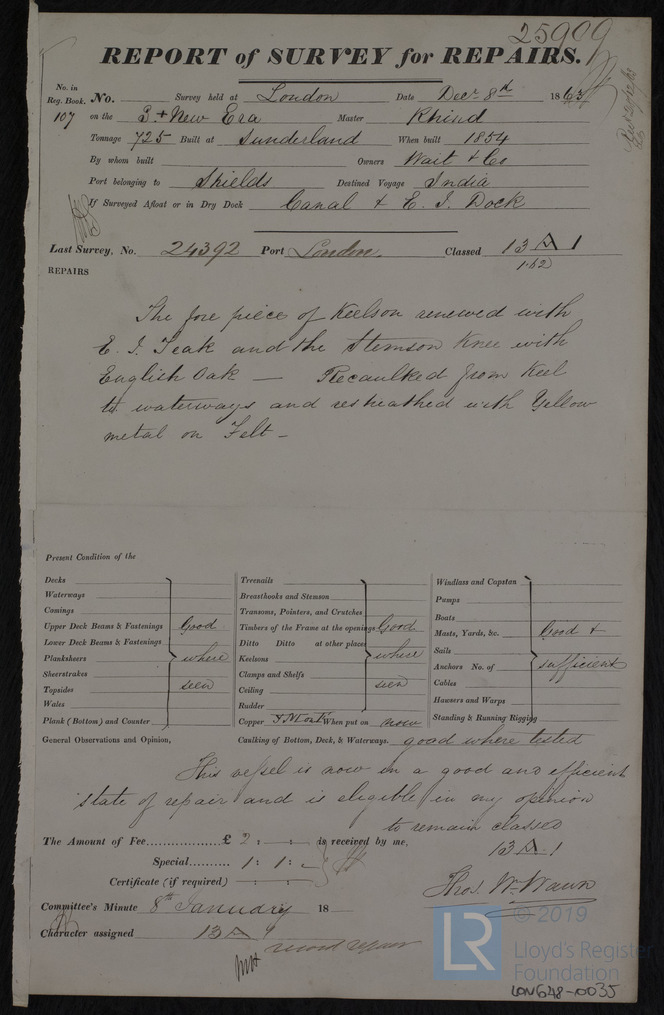 25909
REPORT of SURVEY for REPAIRS.
No. in Reg. Book. No. Survey held at London Date Decr 8th 1863
107 on the B. + New Era Master Rhind
Tonnage 725 Built at Sunderland When built 1854
By whom built Owners Wait & Co
Port belonging to Shields Destined Voyage India
If Surveyed Afloat or in Dry Dock Canal & E. I. Dock
Last Survey, No. 24392 Port London. Classed 13 A 1
1.62
REPAIRS
The fore piece of Keelson renewed with
E. I. Teak and the Stemson Knee with
English Oak — Recaulked from Keel
to waterways and resheathed with Yellow
metal on Felt –
Present Condition of the
Decks
Waterways
Comings
Upper Deck Beams & Fastenings Good
Lower Deck Beams & Fastenings
Planksheers where
Sheerstrakes
Topsides seen
Wales
Plank (Bottom) and Counter
Treenails
Breasthooks and Stemson
Transoms, Pointers, and Crutches
Timbers of the Frame at the openings Good
Ditto Ditto at other places
Keelsons where
Clamps and Shelfs
Ceiling seen
Rudder
Copper When put on now
Windlass and Capstan
Pumps
Boats
Masts, Yards, &c. Good &
Sails
Anchors No. of sufficient
Cables
Hawsers and Warps
Standing & Running Rigging
General Observations and Opinion, Caulking of Bottom, Deck, & Waterways. good where tested
This vessel is now in a good and efficient
state of repair and is eligible in my opinion
to remain classed
13 A 1
The Amount of Fee.................. £ 2 : - : - is received by me,
Special.......... 1 : 1 : -
Certificate (if required) : :
Thos. W. Wawn
Committee's Minute 8th January 18
Character assigned 13 A 1
record repair
© 2019
LR Lloyd's Register
Foundation
LON648-0035